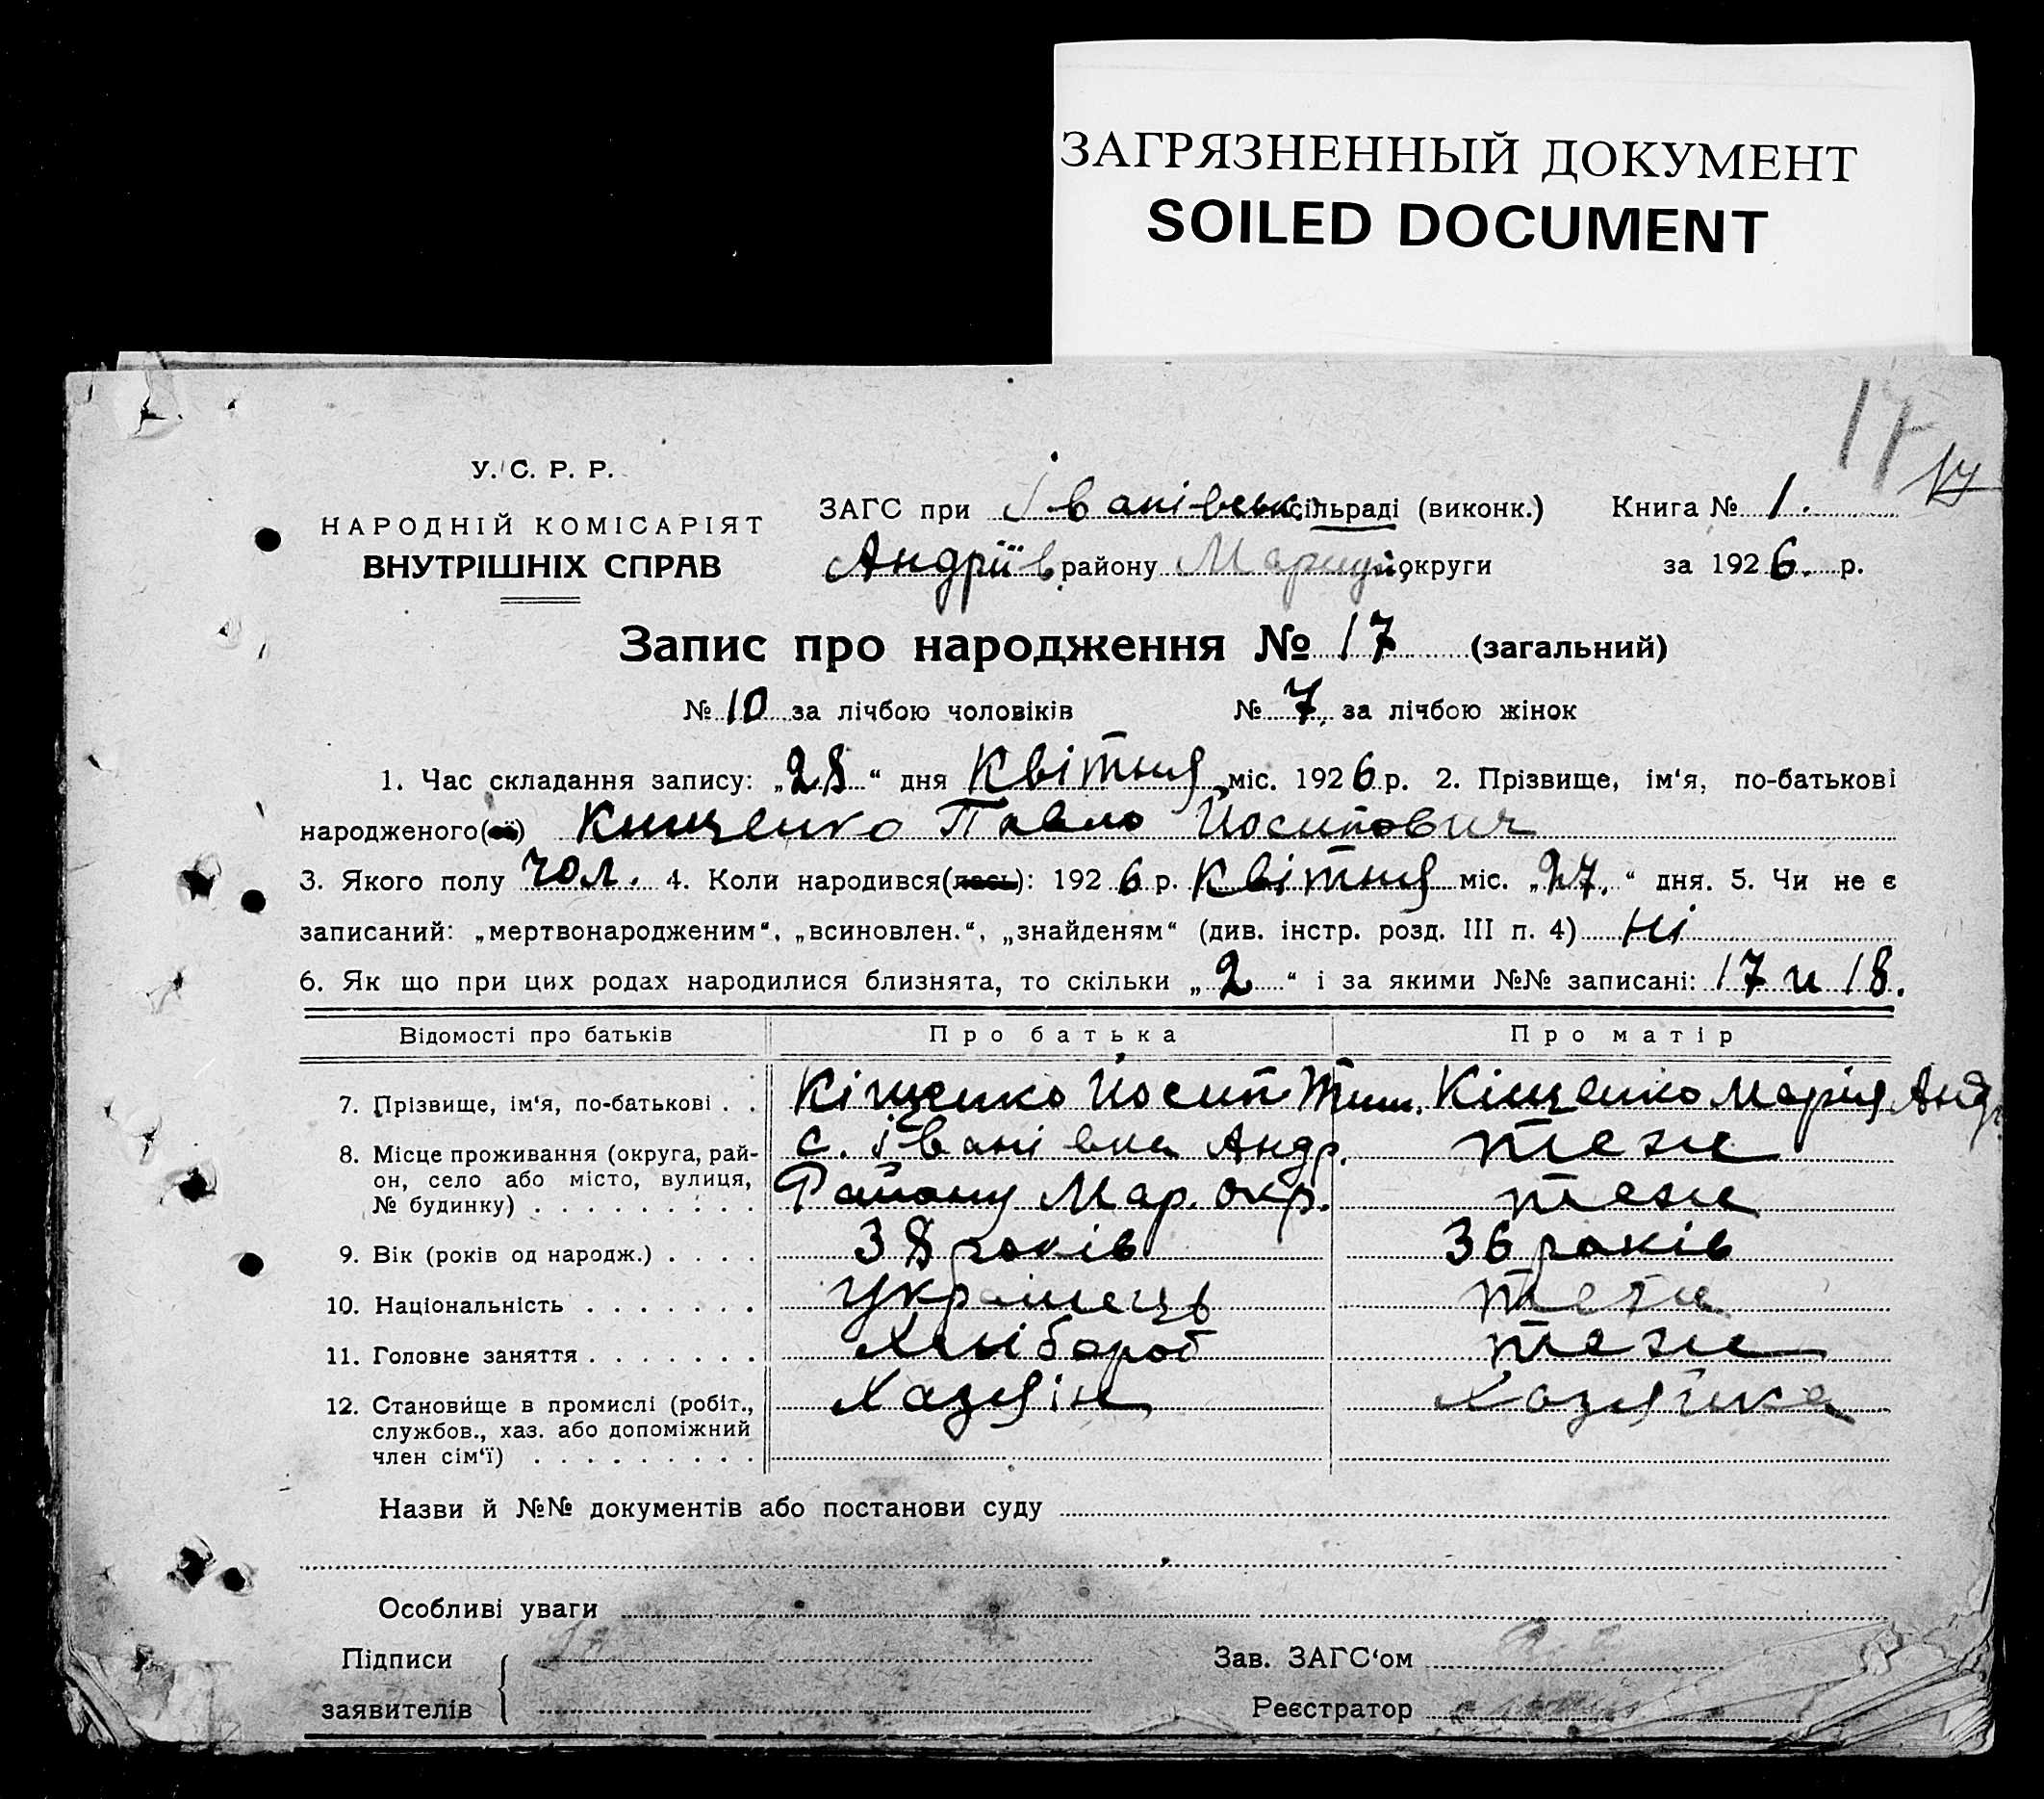 ЗАГРЯЗНЕННЫЙ ДОКУМЕНТ
SOILED DOCUMENT
17
17
У. С. Р. Р.
НАРОДНІЙ КОМІСАРІЯТ
ВНУТРІШНІХ СПРАВ
ЗАГС при Іванівськ. сільраді (виконк.) Книга № 1.
Андріїв. району Маріуп. округи за 1926. р.
Запис про народження № 17 (загальний)
№ 10 за лічбою чоловіків № 7. за лічбою жінок
1. Час складання запису: „28“ дня Квітня міс. 1926 р. 2. Прізвище, ім‘я, по-батькові
народженого(ої) Кищенко Павло Йосипович
3. Якого полу чол. 4. Коли народився(лась): 1926 р. Квітня міс. „27.“ дня. 5. Чи не є
записаний: „мертвонародженим“, „всиновлен.“, „знайденям“ (див. інстр. розд. III п. 4) Ні
6. Як що при цих родах народилися близнята, то скільки „2“ і за якими №№ записані: 17 и 18.
Відомості про батьків Про батька Про матір
7. Прізвище, ім‘я, по-батькові . . Кіщенко Йосип Тим. Кіщенко Марія Андр.
8. Місце проживання (округа, рай- с. Іванівка Андр. теж
он, село або місто, вулиця, Району Мар. окр. теж
№ будинку) . . . . . . . . .
9. Вік (років од народж.) . . . . 38 років 36 років
10. Національність . . . . . . . Українець теж
11. Головне заняття . . . . . . . Хлібороб теж
12. Становище в промислі (робіт., Хазяїн Хазяйка
службов., хаз. або допоміжний
член сім‘ї) . . . . . . . . .
Назви й №№ документів або постанови суду
Особливі уваги
Підписи Зав. ЗАГС‘ом
заявителів Реєстратор